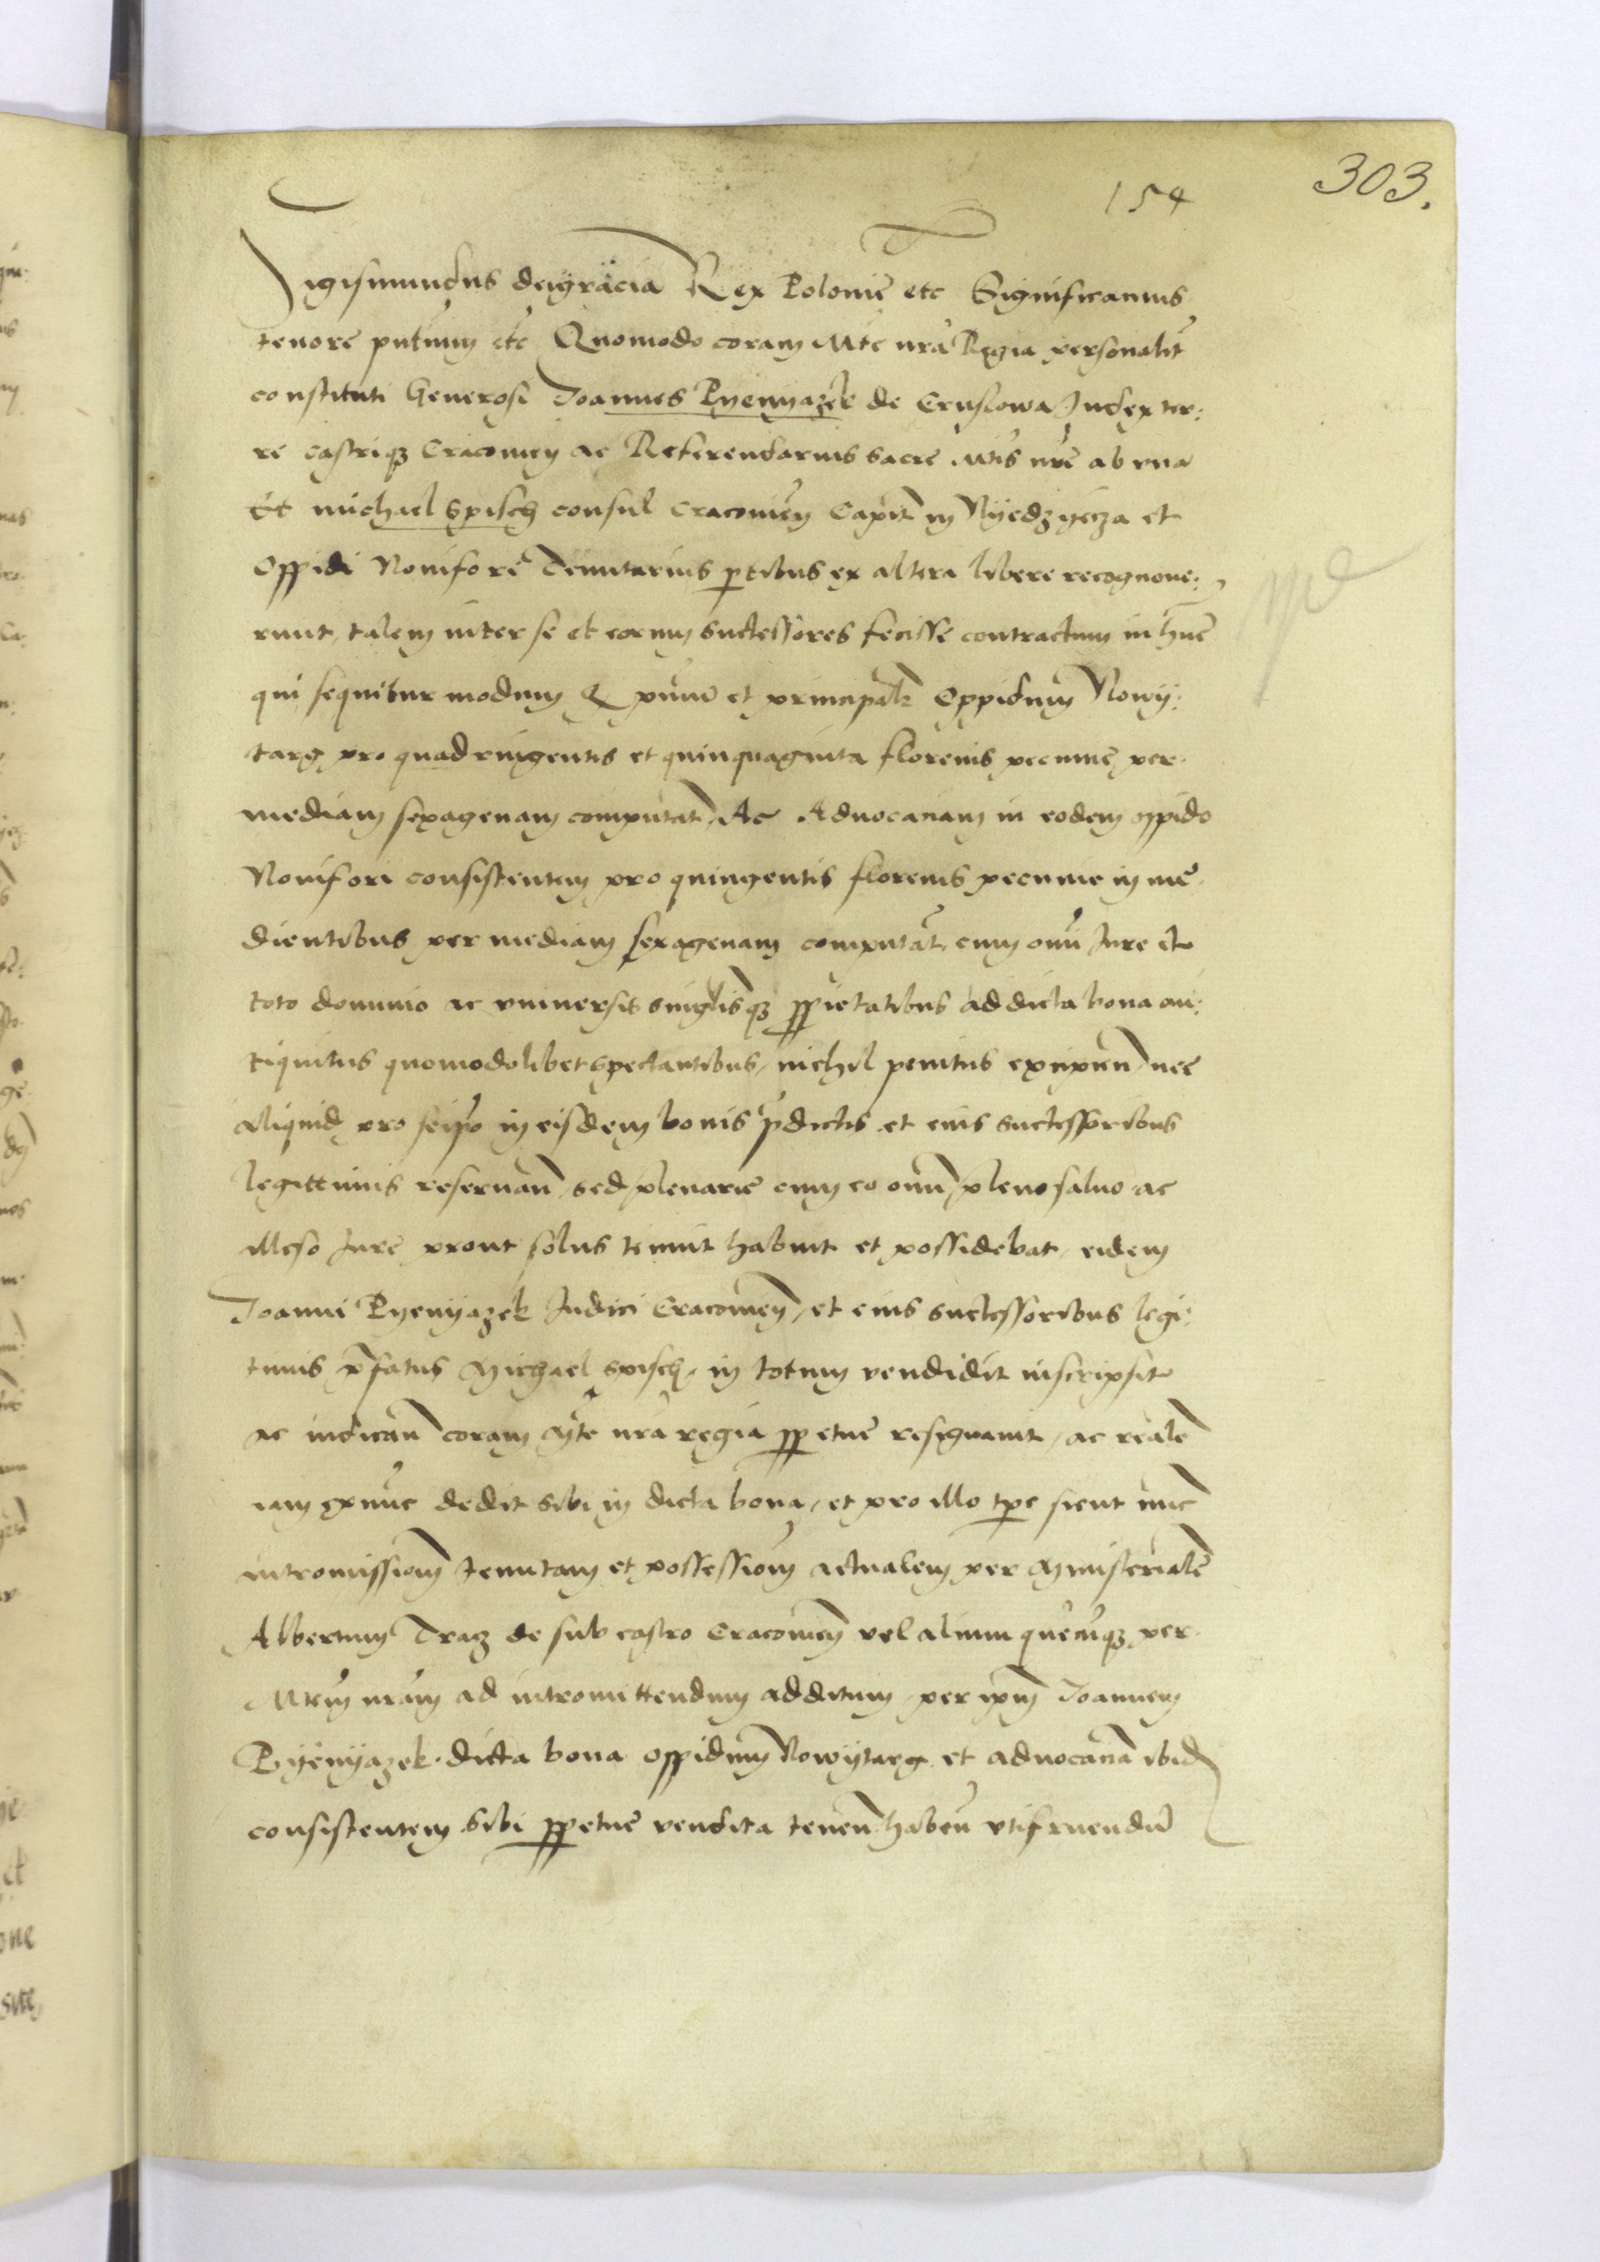 303.
154
Sigismundus dei gracia Rex Polonie etc Significamus
tenore pntium etc Quomodo coram Mte nra Regia personalit
constituti Generosi Joannes Pyenyazek de Crusiowa Judex ter:
re castrique Cracovien ac Referendarius sacre Mtis nre ab una
Et michael Spisch consul Cracovien Capit in Nyedzycza et
Oppidi Novifori Tenutarius ptibus ex altera libere recognove:
runt, talem inter se et eorum successores fecisse contractum in hunc
qui sequitur modum Q primu et principalr Oppidum Nowy:
targ pro quadringentis et quinquaginta florenis pecunie per
mediam sexagenam computat, Ac Advocaciam in eodem oppido
Novifori consistentem pro quingentis florenis pecunie in me
dientibus per mediam sexagenam computat, cum omi Jure et
toto dominio ac universis singlisque pprietatibus ad dicta bona an:
tiquitus quomodolibet spectantibus, nichil penitus excipien, nec
aliquid pro seipo in eisdem bonis pdictis et eius successoribus
legittimis reservan, sed plenarie cum eo omi, pleno salvo ac
illeso Jure prout solus tenuit habuit et possidebat, eidem
Joanni Pyenyazek Judici Cracovien, et eius successoribus legi:
timis pfatus Michael Spisch, in totum vendidit inscripsit
ac iudican coram Mte nra regia ppetue resignavit, ac realem
iam exnunc dedit sibi in dicta bona, et pro illo tpe sicut nunc
intromissionem tenutam et possessionem actualem per Ministerialem
Albertum Tracz de sub castro Cracovien vel alium quemcunque per
Mtem nram ad intromittendum additum, per ipm Joannem
Pyenyazek dicta bona oppidum Nowytarg et advocaciam ibidem
consistentem sibi ppetue vendita tenen haben utifruendum